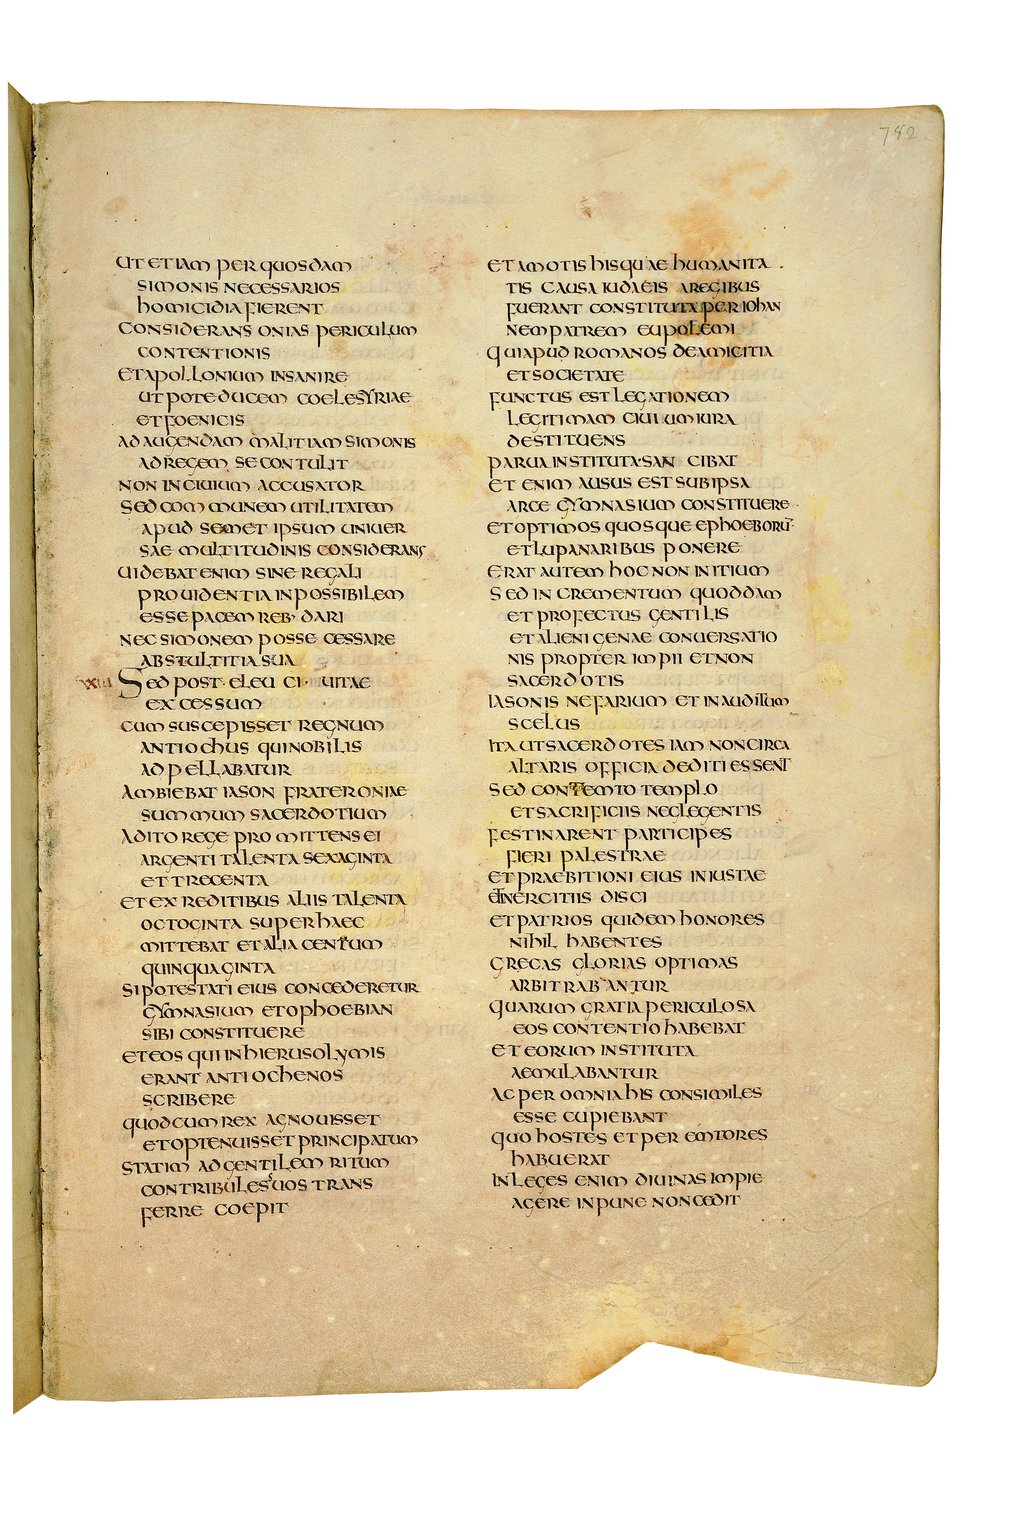 782
UT ETIAM PER QUOSDAM
SIMONIS NECESSARIOS
HOMICIDIA FIERENT
CONSIDERANS ONIAS PERICULUM
CONTENTIONIS
ET APOLLONIUM INSANIRE
UTPOTE DUCEM COELESYRIAE
ET FOENICIS
AD AUGENDAM MALITIAM SIMONIS
AD REGEM SE CONTULIT
NON IN CIUIUM ACCUSATOR
SED COMMUNEM UTILITATEM
APUD SEMET IPSUM UNIUER
SAE MULTITUDINIS CONSIDERANS
UIDEBAT ENIM SINE REGALI
PROUIDENTIA INPOSSIBILEM
ESSE PACEM REB· DARI
NEC SIMONEM POSSE CESSARE
AB STULTITIA SUA
XIII SED POST· ELEUCI· UITAE
EXCESSUM
CUM SUSCEPISSET REGNUM
ANTIOCHUS QUI NOBILIS
ADPELLABATUR
AMBIEBAT IASON FRATER ONIAE
SUMMUM SACERDOTIUM
ADITO REGE PROMITTENS EI
ARGENTI TALENTA SEXAGINTA
ET TRECENTA
ET EX REDITIBUS ALIIS TALENTA
OCTOGINTA SUPER HAEC
MITTEBAT ET ALIA CENTUM
QUINQUAGINTA
SI POTESTATI EIUS CONCEDERETUR
GYMNASIUM ET OPHOEBIAN
SIBI CONSTITUERE
ET EOS QUI IN HIERUSOLYMIS
ERANT ANTIOCHENOS
SCRIBERE
QUOD CUM REX AGNOUISSET
ET OPTENUISSET PRINCIPATUM
STATIM AD GENTILEM RITUM
CONTRIBULES UOS TRANS
FERRE COEPIT
ET AMOTIS HIS QUAE HUMANITA
TIS CAUSA IUDAEIS A REGIBUS
FUERANT CONSTITUTA PER IOHAN
NEM PATREM EUPOLEMI
QUI APUD ROMANOS DE AMICITIA
ET SOCIETATE
FUNCTUS EST LEGATIONEM
LEGITIMAM CIUIUM IURA
DESTITUENS
PARUA INSTITUTA· SANCIBAT
ET ENIM AUSUS EST SUB IPSA
ARCE GYMNASIUM CONSTITUERE
ET OPTIMOS QUOSQUE EPHOEBORŪ
ET LUPANARIBUS PONERE
ERAT AUTEM HOC NON INITIUM
SED INCREMENTUM QUODDAM
ET PROFECTUS GENTILIS
ET ALIENIGENAE CONUERSATIO
NIS PROPTER IMPII ET NON
SACERDOTIS
IASONIS NEFARIUM ET INAUDITUM
SCELUS
ITA UT SACERDOTES IAM NON CIRCA
ALTARIS OFFICIA DEDITI ESSENT
SED CONTEMTO TEMPLO
ET SACRIFICIIS NEGLEGENTIS
FESTINARENT PARTICIPES
FIERI PALESTRAE
ET PRAEBITIONI EIUS INIUSTAE
DISCI
ET PATRIOS QUIDEM HONORES
NIHIL HABENTES
GRECAS GLORIAS OPTIMAS
ARBITRABANTUR
QUARUM GRATIA PERICULOSA
EOS CONTENTIO HABEBAT
ET EORUM INSTITUTA
AEMULABANTUR
AC PER OMNIA HIS CONSIMILES
ESSE CUPIEBANT
QUO HOSTES ET PEREMTORES
HABUERAT
IN LEGES ENIM DIUINAS IMPIE
AGERE INPUNE NON CEDIT